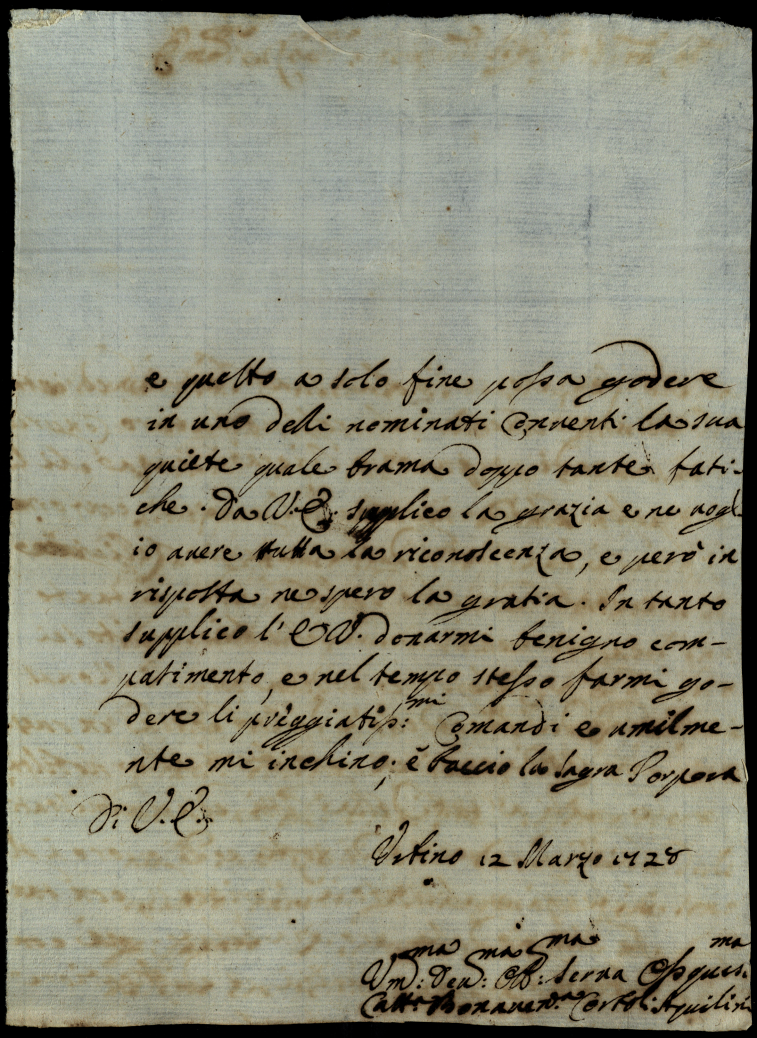 e questo a solo fine possa godere
in uno delli nominati Conventi la sua
quiete quale brama doppo tante fati-
che. Da V.E. supplico la grazia e ne vogl
io avere tutta la riconoscenza, e però in
risposta ne spero la gratia. In tanto
supplico l'E.V. donarmi benigno com-
patimento, e nel tempo stesso farmi go-
dere li preggiatiss:mi Comandi e umilme-
nte mi inchino; e baccio la Sagra Porpora
Di V.E.
Urbino 12 Marzo 1728
Um:ma Dev:ma Ob:ma Serva Ossequis:ma
Bonaven:ra